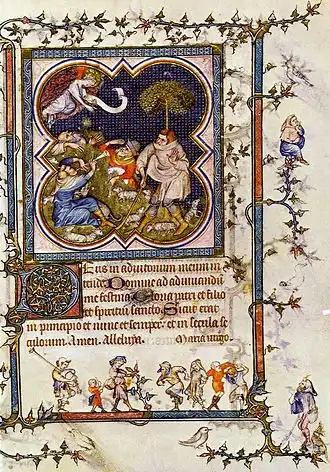 Deus in adiutorium meum in
tende. Domine ad adiuuandū
me festina. Gloria patri et filio
et spiritui sancto. Sicut erat
in principio et nunc et semper. et in secula se
culorum. Amen. Alleluya. Maria uirgo.